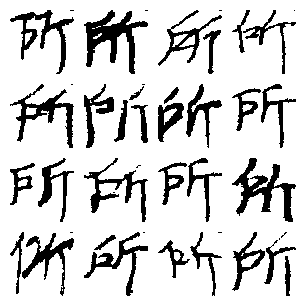 所所所所
所所所所
所所所所
所所所所